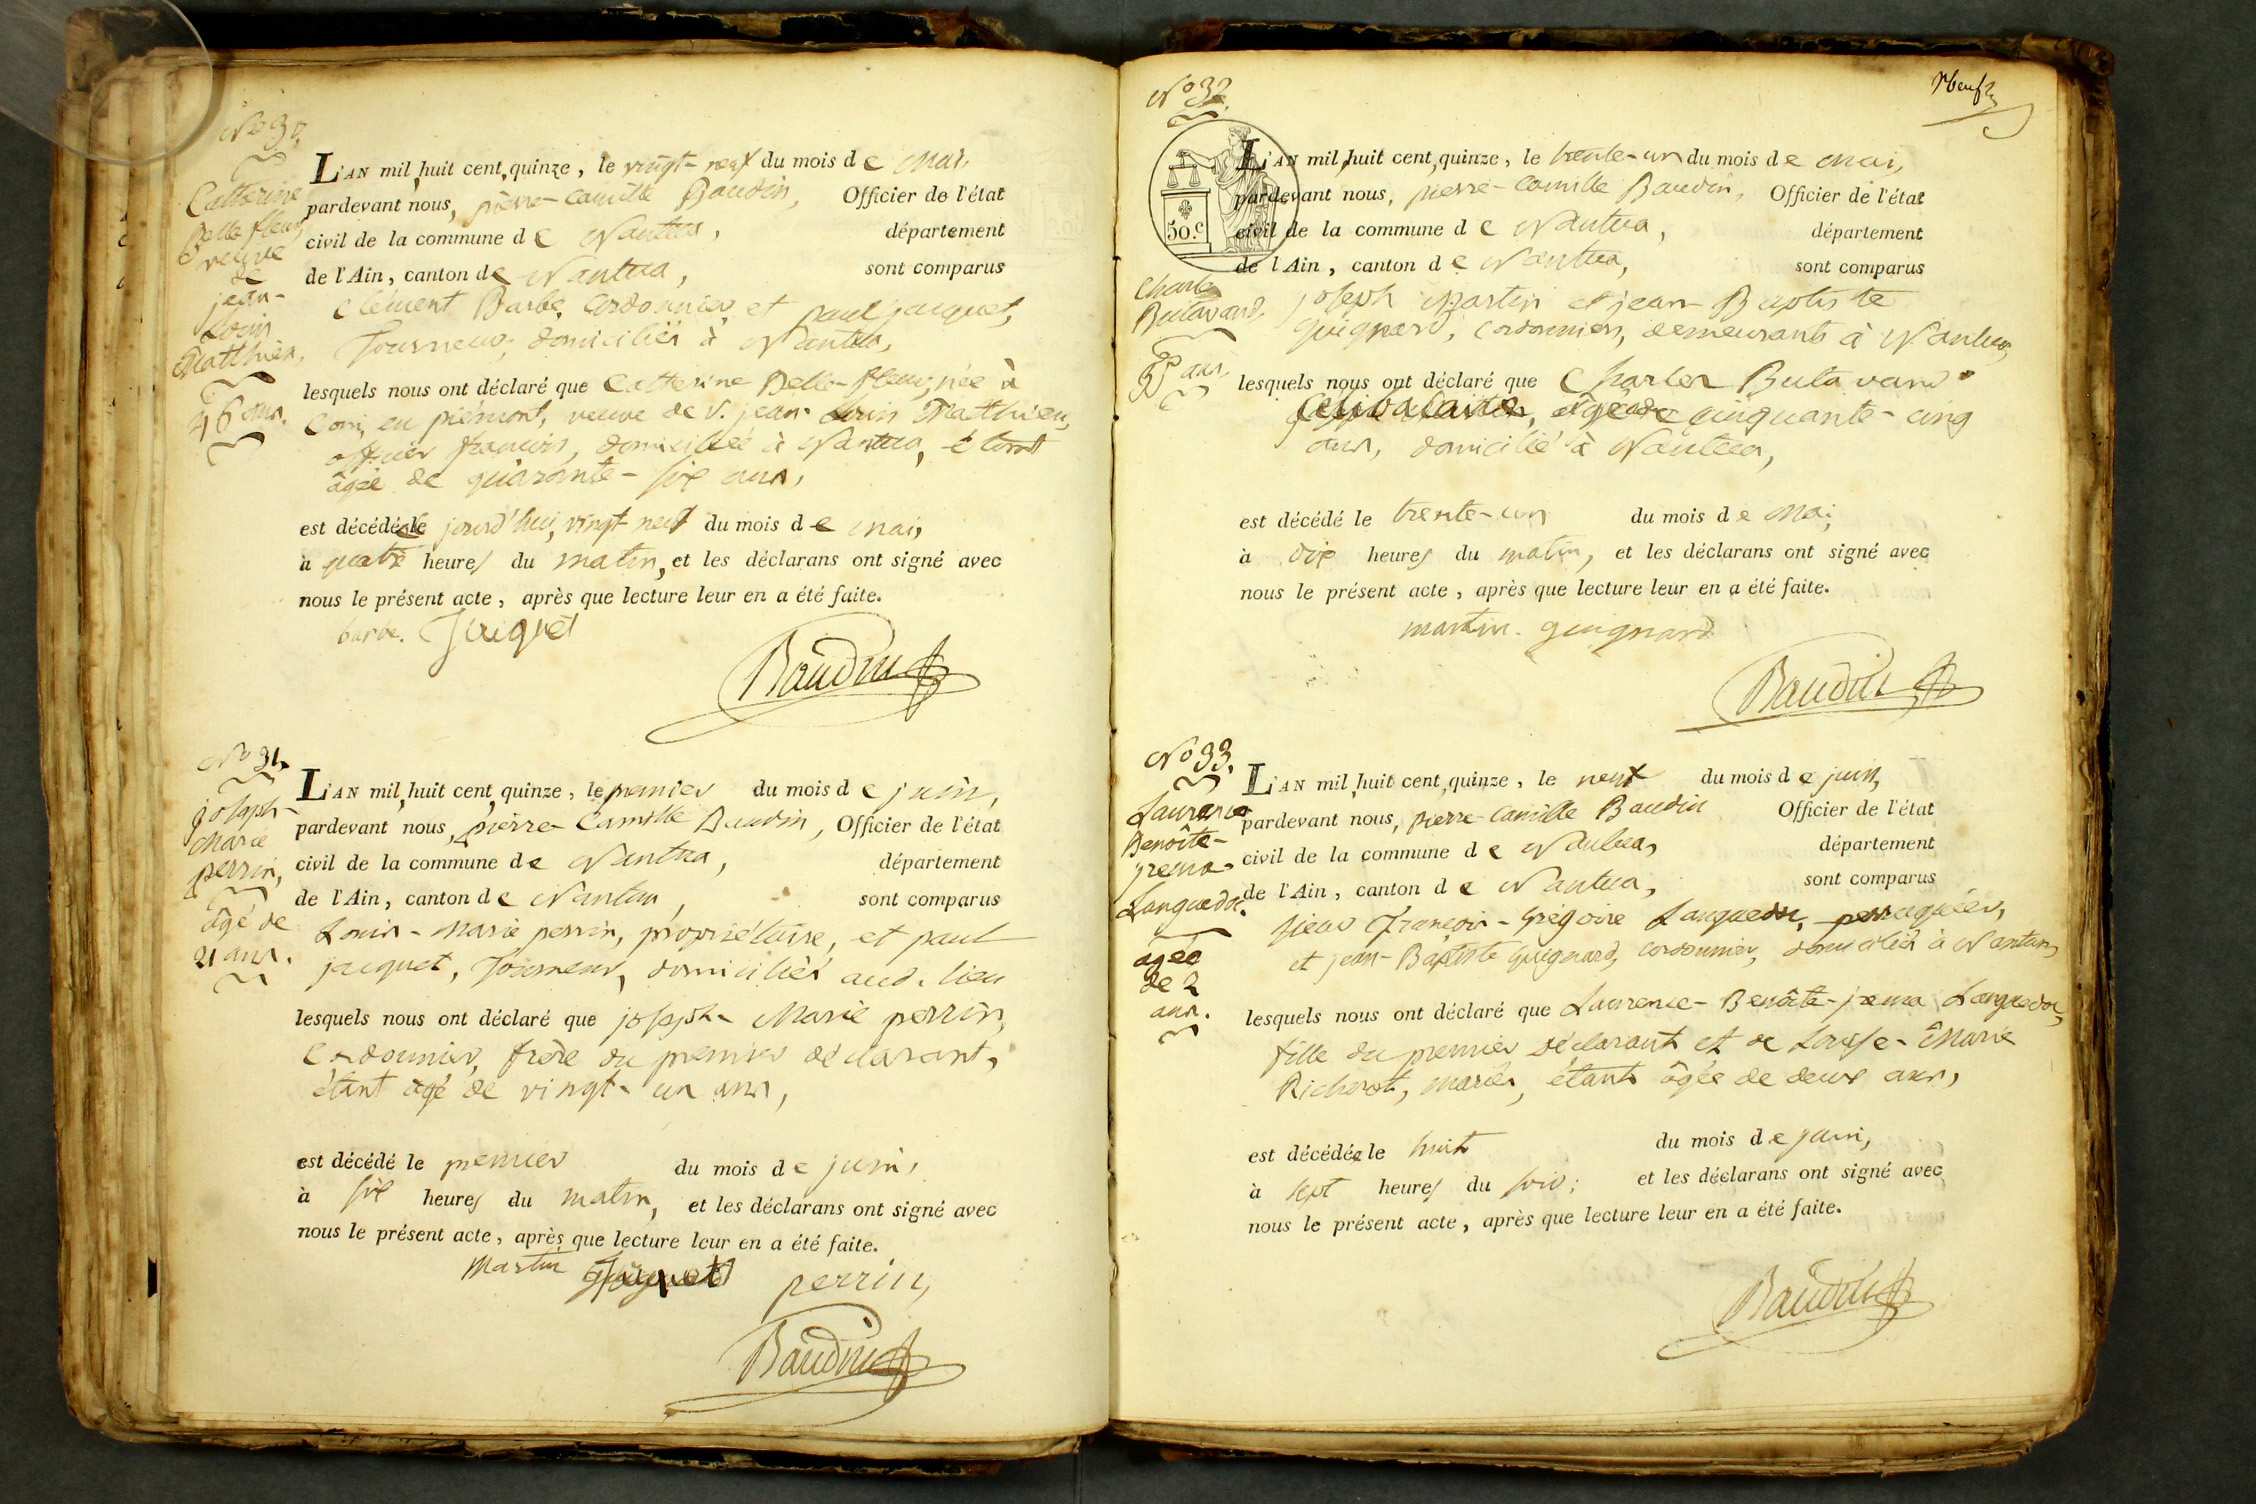 No 30.
Catherine
Belle-fleur,
veuve
de
jean-
Louis
Matthieu,
46 ans.
L'AN mil huit cent quinze, le vingt-neuf du mois de mai,
pardevant nous, pierre-camille Baudin, Officier de l'état
civil de la commune de Nantua, département
de l'Ain, canton de Nantua, sont comparus
Clément Barbe, Cordonnier et paul jacquet,
Tourneur, domiciliés à Nantua,
lesquels nous ont déclaré que Catherine Belle-fleur, née à
Coni, en piémont, veuve de S. jean-Louis Matthieu,
officier françois, domiciliée à Nantua, étant
âgée de quarante-six ans,
est décédée le jourd'hui, vingt-neuf du mois de mai,
à quatre heures du matin, et les déclarans ont signé avec
nous le présent acte, après que lecture leur en a été faite.
barbe. Jaiquet
Baudin
No 31.
joseph-
Marie
perrin,
âgé de
21 ans.
L'AN mil huit cent quinze, le premier du mois de juin,
pardevant nous, pierre-Camille Baudin, Officier de l'état
civil de la commune de Nantua, département
de l'Ain, canton de Nantua, sont comparus
Louis-Marie perrin, propriétaire, et paul
jacquet, Tourneur, domiciliés aud. lieu
lesquels nous ont déclaré que joseph-Marie perrin,
Cordonnier, frère du premier déclarant,
étant âgé de vingt-un ans,
est décédé le premier du mois de juin,
à six heures du matin, et les déclarans ont signé avec
nous le présent acte, après que lecture leur en a été faite.
Martin perrin,
Baudin
Neuf
No 32.
50.c
Charles
Butavand,
55 ans,
L'AN mil huit cent quinze, le trente-un du mois de mai,
pardevant nous, pierre-Camille Baudin, Officier de l'état
civil de la commune de Nantua, département
de l'Ain, canton de Nantua, sont comparus
joseph Martin et jean-Baptiste
guignard, cordonniers, demeurants à Nantua,
lesquels nous ont déclaré que Charles Butavand
âgé de cinquante-cinq
ans, domicilié à Nantua,
est décédé le trente-un du mois de Mai,
à dix heures du matin, et les déclarans ont signé avec
nous le présent acte, après que lecture leur en a été faite.
martin. guignard
Baudin
No 33.
Laurence
Benoîte-
jrema
Languedoc.
âgée
de 2
ans.
L'AN mil huit cent quinze, le neuf du mois de juin,
pardevant nous, pierre-camille Baudin Officier de l'état
civil de la commune de Nantua, département
de l'Ain, canton de Nantua, sont comparus
sieur François-Grégoire Languedoc, perruquier,
et jean-Baptiste Guignard, cordonnier, domiciliés à Nantua,
lesquels nous ont déclaré que Laurence-Benoîte-jrema Languedoc,
fille du premier déclarant et de Louise-Marie
Richerot, mariés, étant âgée de deux ans,
est décédée le huit du mois de juin,
à sept heures du soir; et les déclarans ont signé avec
nous le présent acte, après que lecture leur en a été faite.
Baudin